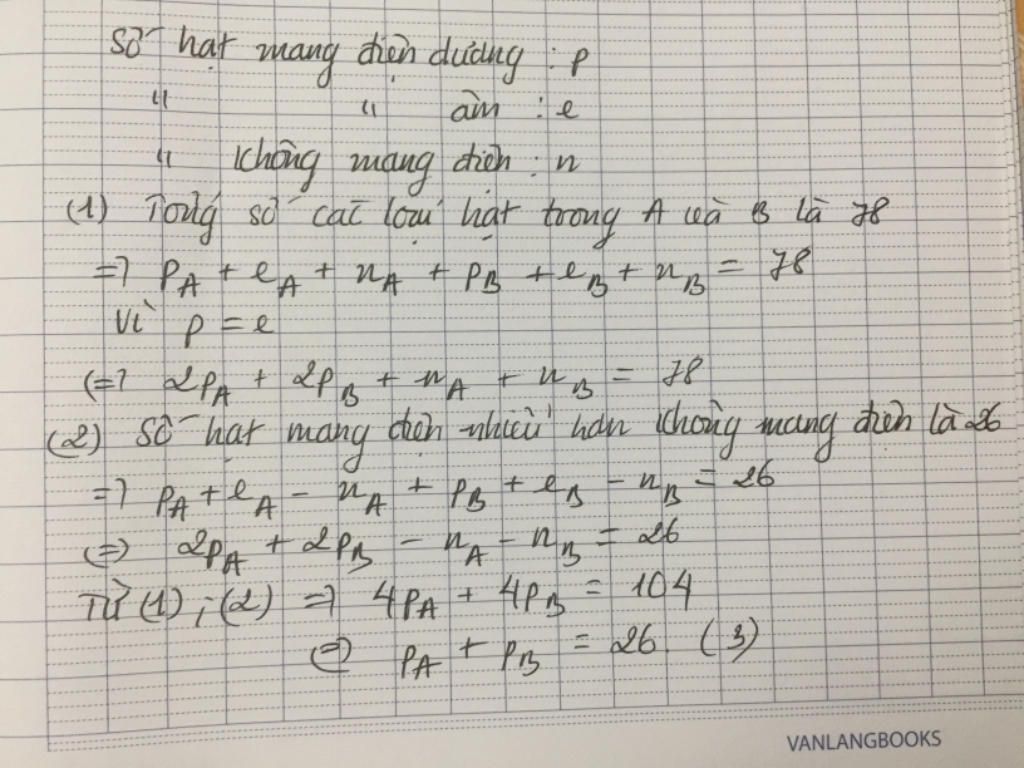 Số hạt mang điện dương : p
" " âm : e
" không mang điện : n
(1) Tổng số các loại hạt trong A và B là 78
=> pA + eA + nA + pB + eB + nB = 78
Vì p = e
(=> 2pA + 2pB + nA + nB = 78
(2) Số hạt mang điện nhiều hơn không mang điện là 26
=> pA + eA - nA + pB + eB - nB = 26
(=) 2pA + 2pB - nA - nB = 26
Từ (1) ; (2) => 4pA + 4pB = 104
(=) pA + pB = 26. (3)
VANLANGBOOKS